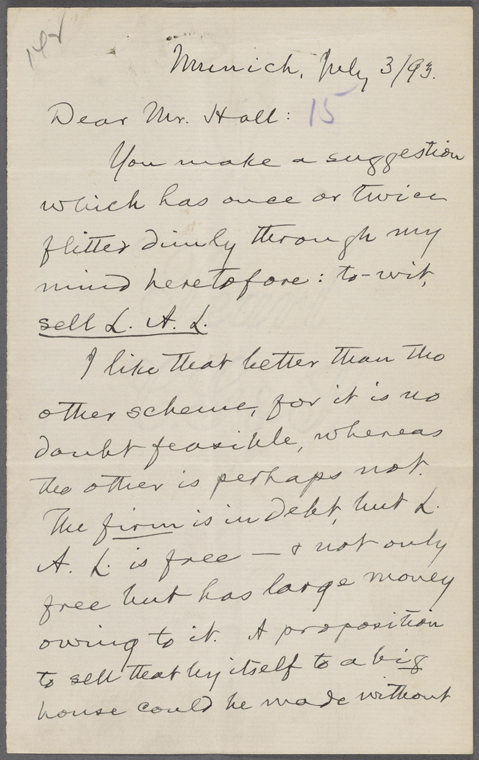 Munich, July 3/93.
Dear Mr. Hall: 15
You make a suggestion
which has once or twice
flitted dimly through my
mind heretofore: to-wit,
sell L. A. L.
I like that better than the
other scheme, for it is no
doubt feasible, whereas
the other is perhaps not.
The firm is in debt, but L.
A. L. is free — & not only
free but has large money
owing to it. A proposition
to sell that by itself to a big
house could be made without